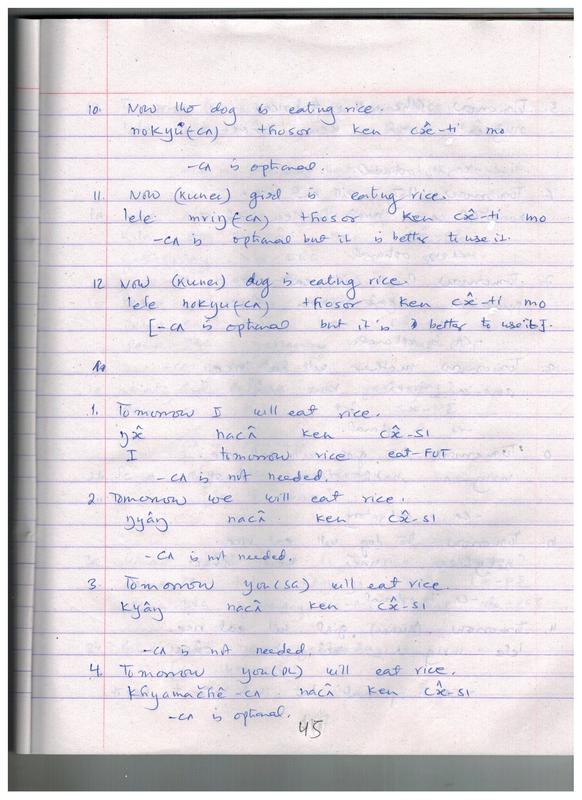 10. Now the dog is eating rice.
nokyu(-cʌ) thosor ken cʌ̂-ti mo
-cʌ is optional.
11. Now (Kunei) girl is eating rice.
lele mriŋ(-cʌ) thosor ken cʌ̂-ti mo
-cʌ is optional but it is better to use it.
12 Now (Kunei) dog is eating rice.
lele nokyu(-cʌ) thosor ken cʌ̂-ti mo
[-cʌ is optional but it is better to use it].
1. Tomorrow I will eat rice.
ŋʌ̂ nacʌ̂ ken cʌ̂-sɪ
I tomorrow rice eat-FUT
-cʌ is not needed.
2. Tomorrow we will eat rice.
ŋyâŋ nacʌ̂ ken cʌ̂-sɪ
-cʌ is not needed.
3. Tomorrow you(SG) will eat rice.
kyâŋ nacʌ̂ ken cʌ̂-sɪ
-cʌ is not needed.
4. Tomorrow you(PL) will eat rice.
khyamačhê -cʌ nacʌ̂ ken cʌ̂-sɪ
-cʌ is optional.
45